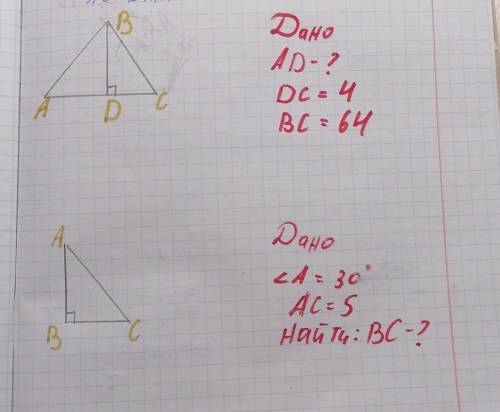 B
A D C
Дано
AD - ?
DC = 4
BC = 64
A
B C
Дано
∠A = 30°
AC = 5
Найти: BC - ?